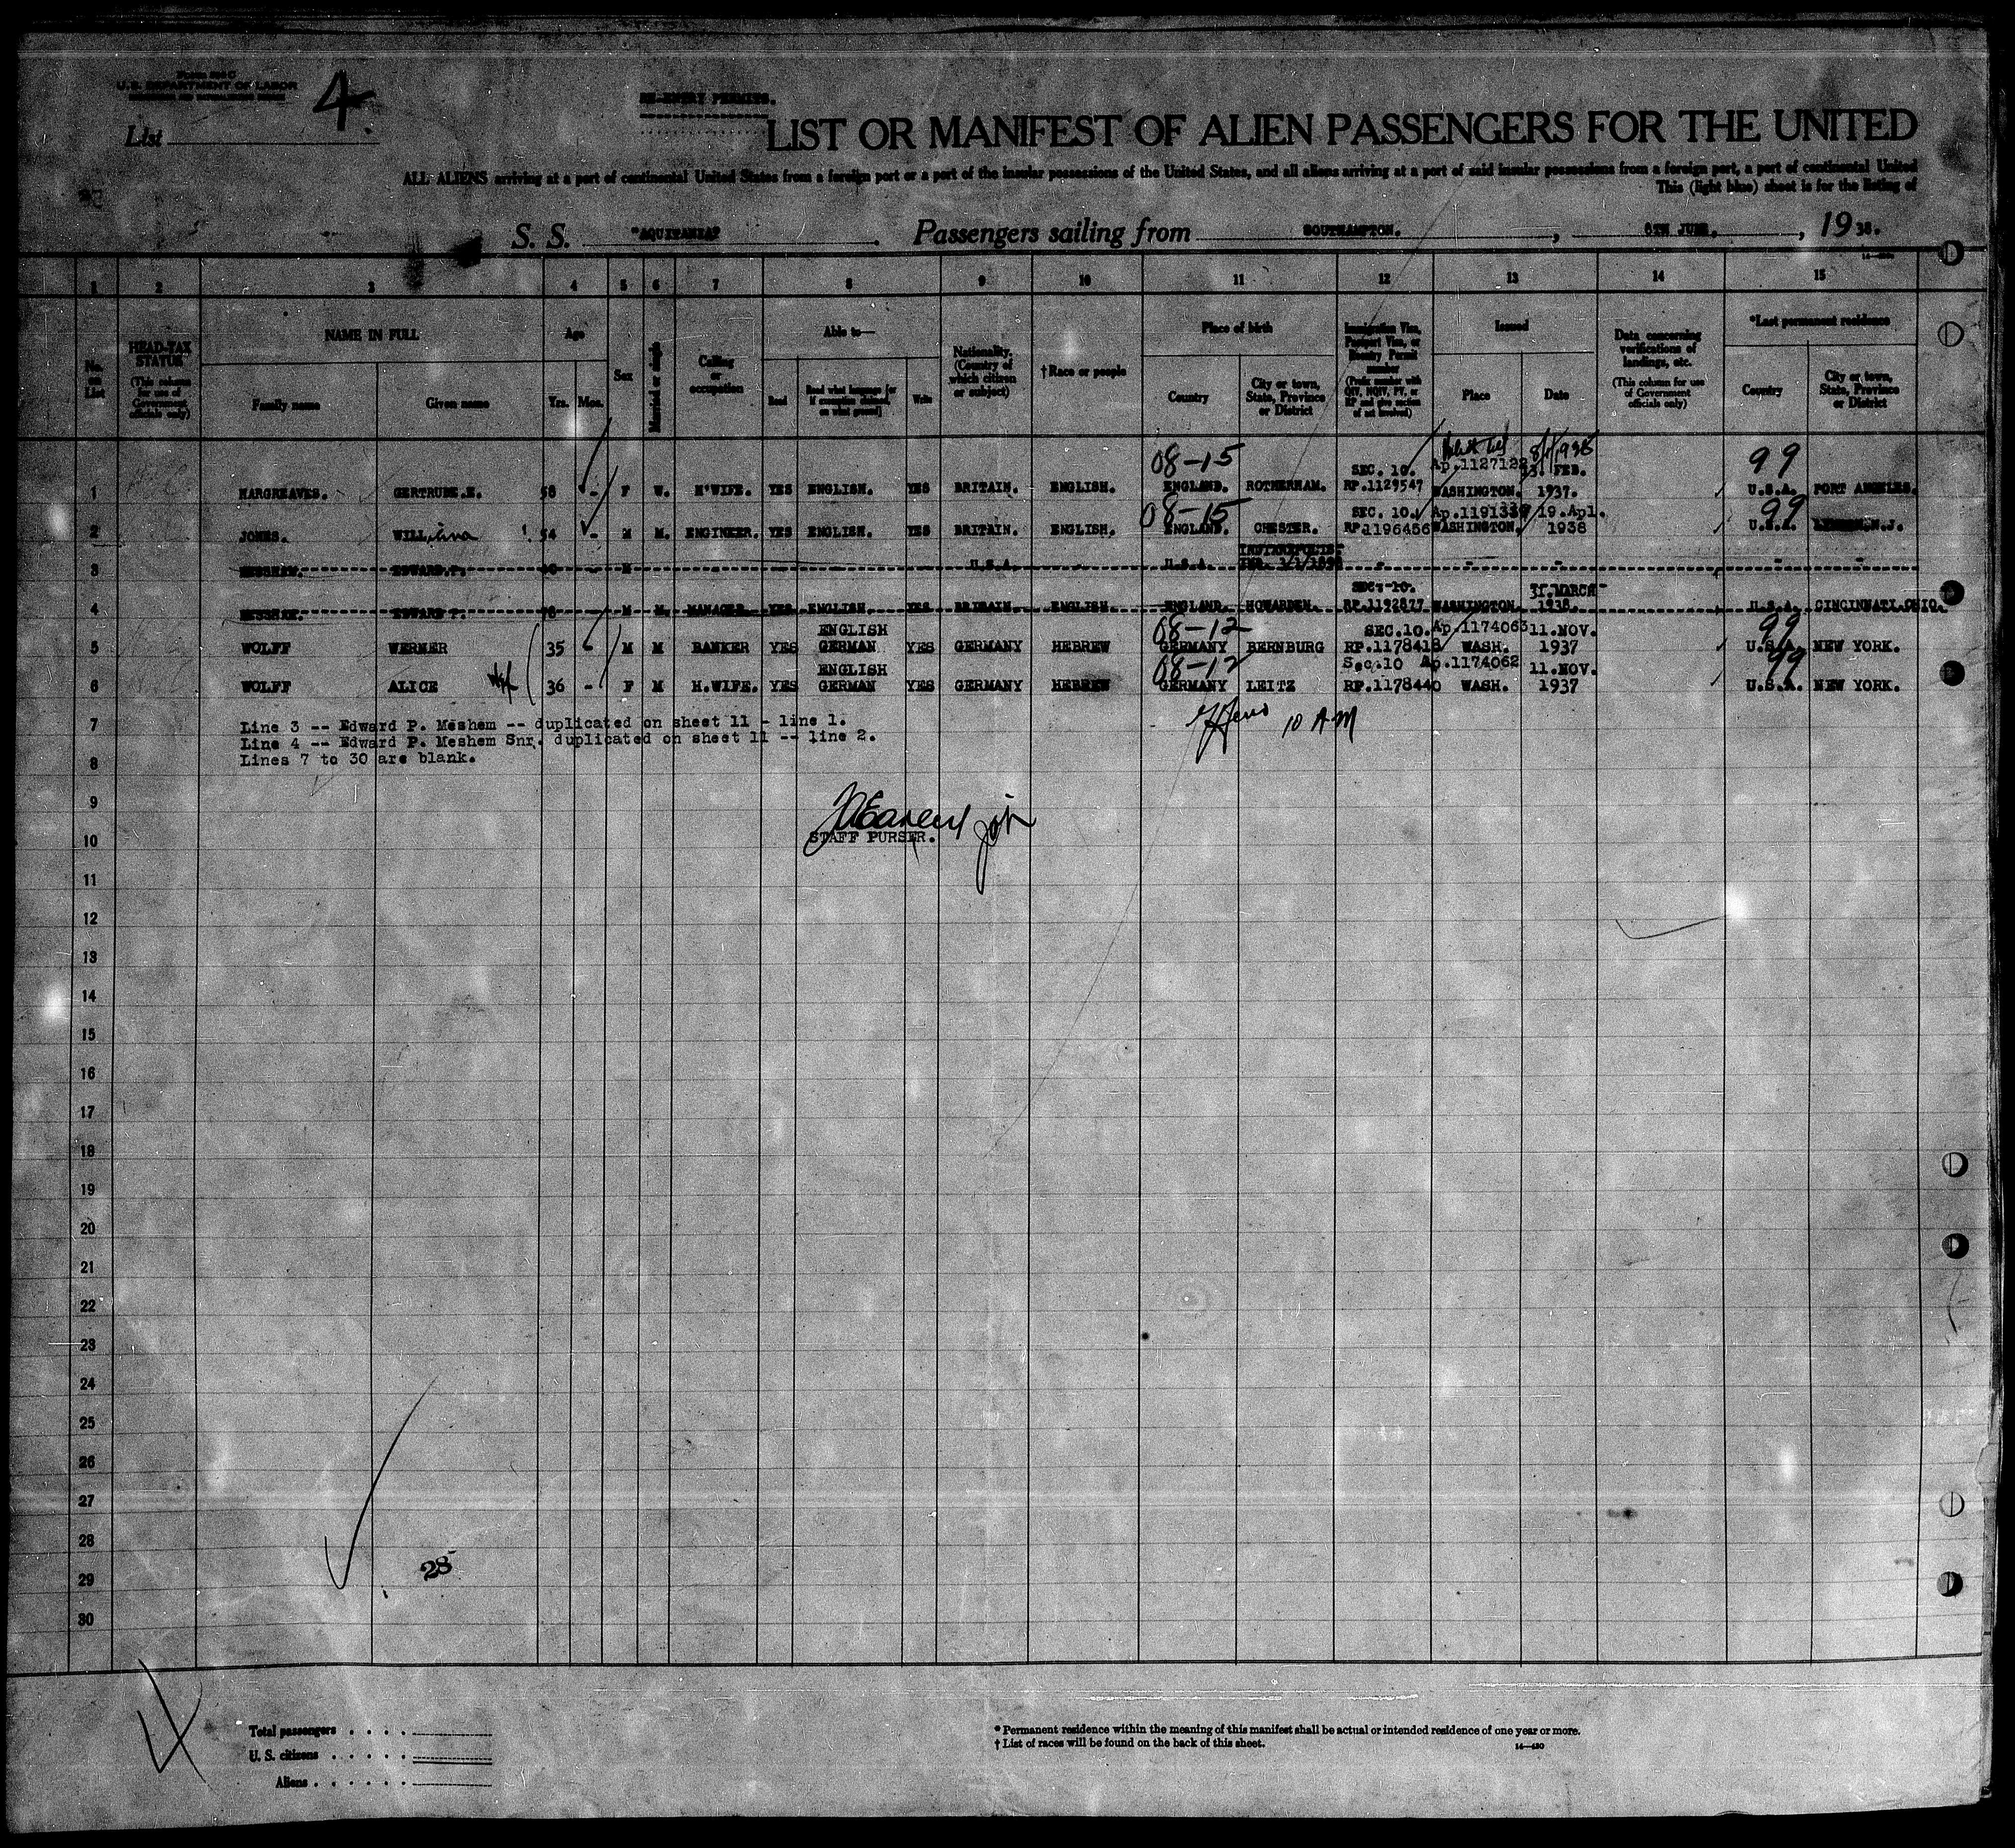 Form 500 C
U. S. DEPARTMENT OF LABOR
List 4.
RE-ENTRY PERMITS.
LIST OR MANIFEST OF ALIEN PASSENGERS FOR THE UNITED
ALL ALIENS arriving at a port of continental United States from a foreign port or a port of the insular possessions of the United States, and all aliens arriving at a port of said insular possessions from a foreign port, a port of continental United
This (light blue) sheet is for the listing of
S. S. "AQUITANIA" . Passengers sailing from SOUTHAMPTON. , 8TH JUNE. , 19 38.
1 2 3 4 5 6 7 8 9 10 11 12 13 14 15
No. on List
HEAD-TAX STATUS
(This column for use of Government officials only)
NAME IN FULL
Family name Given name
Age
Yrs. Mos.
Sex
Married or single
Calling or occupation
Able to—
Read Read what language [or if exemption claimed, on what ground] Write
Nationality. (Country of which citizen or subject)
†Race or people
Place of birth
Country City or town, State, Province or District
Immigration Visa, Passport Visa, or Reentry Permit number
(Prefix number with QIV, NQIV, PV, or RP and give section of act involved)
Issued
Place Date
Data concerning verifications of landings, etc.
(This column for use of Government officials only)
*Last permanent residence
Country City or town, State, Province or District
08-15 SEC. 10. Ap.1127122 13. FEB. 99
1 HARGREAVES. GERTRUDE.E. 58 - F W. H'WIFE. YES ENGLISH. YES BRITAIN. ENGLISH. ENGLAND. ROTHERHAM. RP.1129547 WASHINGTON. 1937. U.S.A. PORT ANGELES.
08-15 SEC. 10. Ap.1191339 19.Apl. 99
2 JONES. WILLiam 54 - M M. ENGINEER. YES ENGLISH. YES BRITAIN. ENGLISH. ENGLAND. CHESTER. RP.1196456 WASHINGTON. 1938 U.S.A. N.J.
INDIANAPOLIS.
3 MESSHEM. EDWARD.P. M U.S.A. U.S.A. IND.
SEC. 10. 31.MARCH
4 MESSHEM. EDWARD P. 70 - M M. MANAGER. YES ENGLISH. YES BRITAIN. ENGLISH. ENGLAND. HOWARDEN. RP.1192877 WASHINGTON. 1938. U.S.A. CINCINNATI.OHIO.
ENGLISH 08-12 SEC.10. Ap.1174063 11.NOV. 99
5 WOLFF WERNER 35 M M BANKER YES GERMAN YES GERMANY HEBREW GERMANY BERNBURG RP.1178418 WASH. 1937 U.S.A. NEW YORK.
ENGLISH 08-12 Sec.10 Ap.1174062 11.NOV. 99
6 WOLFF ALICE 36 - F M H.WIFE. YES GERMAN YES GERMANY HEBREW GERMANY LEITZ RP.1178440 WASH. 1937 U.S.A. NEW YORK.
7 Line 3 -- Edward P. Meshem -- duplicated on sheet 11 - line 1. 10 AM
Line 4 -- Edward P. Meshem Snr. duplicated on sheet 11 -- line 2.
8 Lines 7 to 30 are blank.
9
10 STAFF PURSER.
11
12
13
14
15
16
17
18
19
20
21
22
23
24
25
26
27
28
28
29
30
Total passengers . . . .
U. S. citizens . . . . .
Aliens . . . . . .
* Permanent residence within the meaning of this manifest shall be actual or intended residence of one year or more.
† List of races will be found on the back of this sheet.
14—430